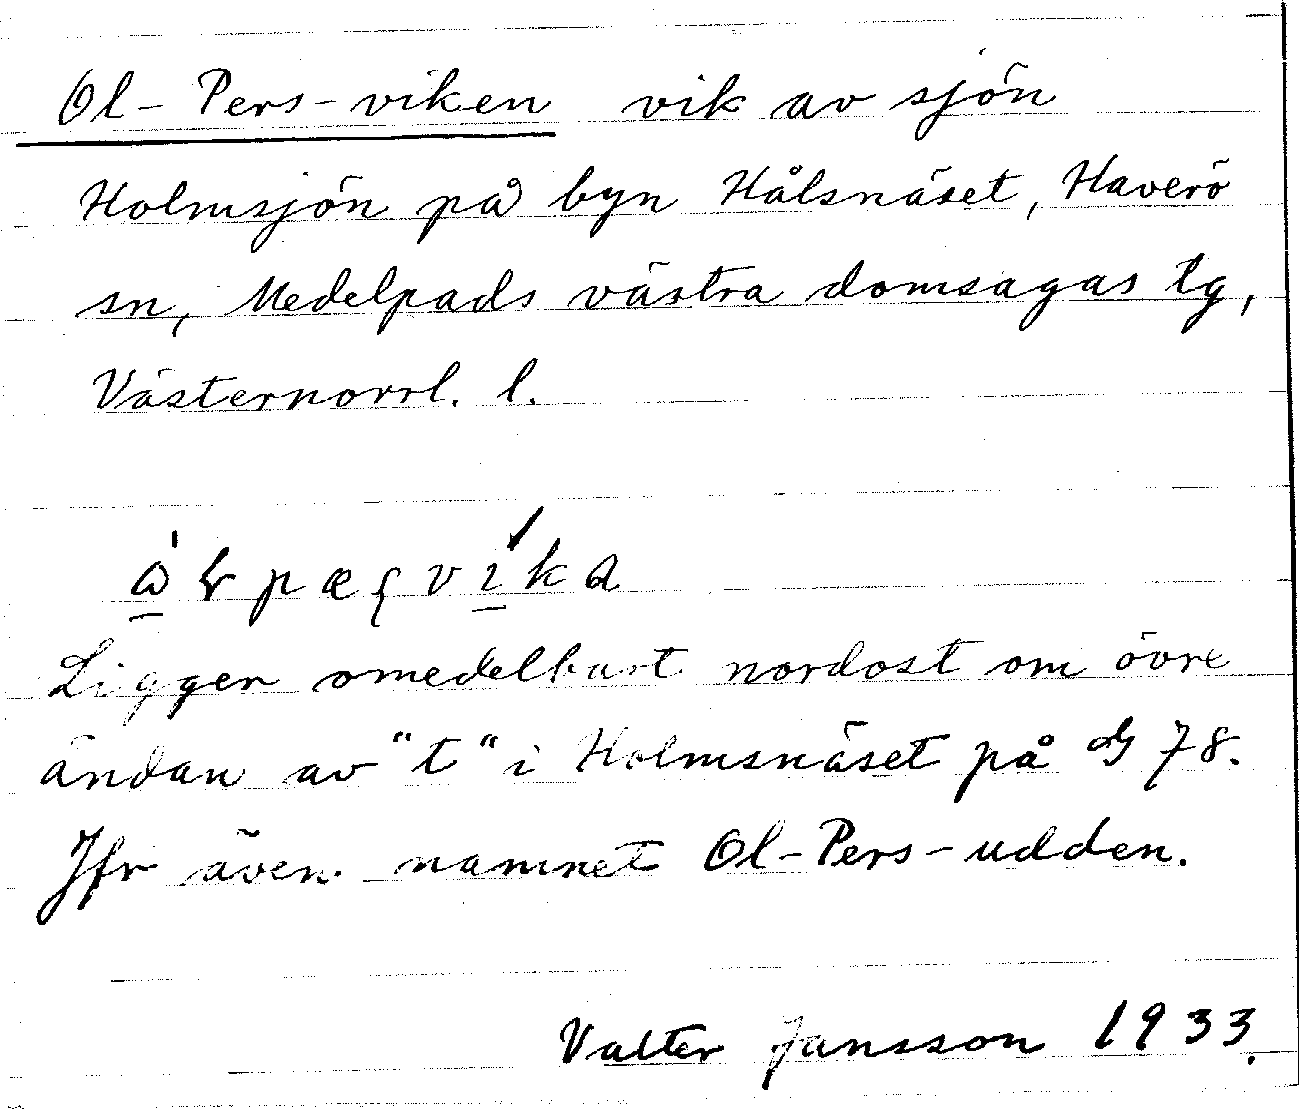 Ol-Pers-viken vik av sjön
Holmsjön på byn Hålsnäset, Haverö
sn, Medelpads västra domsagas tg,
Västernorrl. l.
Ligger omedelbart nordost om övre
ändan av "t" i Holmsnäset på 78.
Jfr även namnet Ol-Pers-udden.
Valter Jansson 1933.